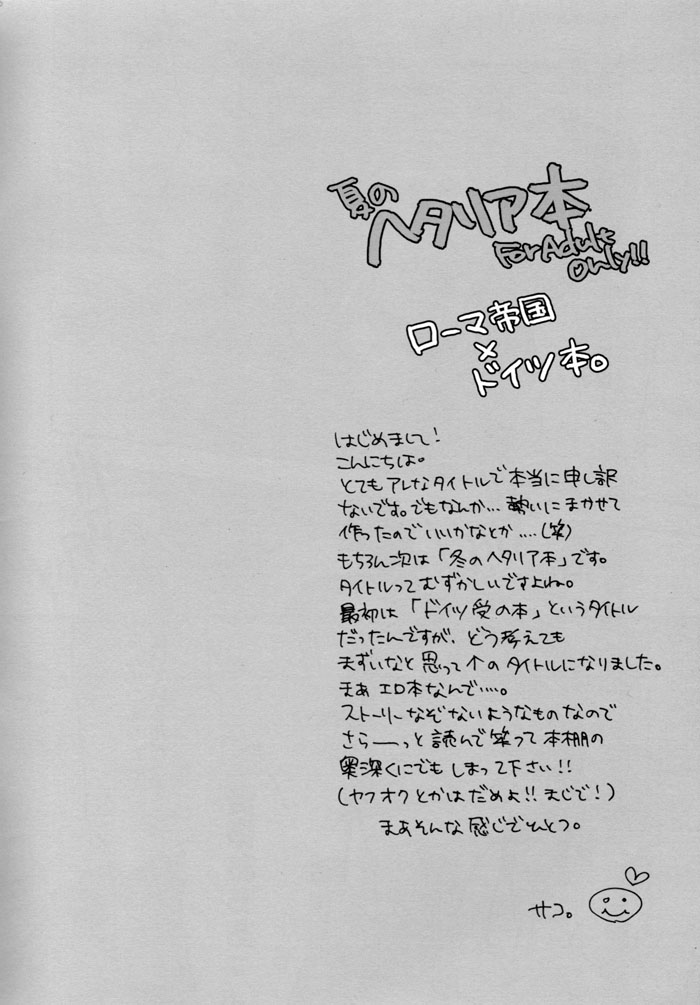 夏の
ヘタリア本
For Adult
Only!!
ローマ帝国
×
ドイツ本。
はじめまして!
こんにちは。
とてもアレなタイトルで本当に申し訳
ないです。でもなんか…勢いにまかせて
作ったのでいいかなとか‥‥(笑)
もちろん次は「冬のヘタリア本」です。
タイトルってむずかしいですよね。
最初は「ドイツ受の本」というタイトル
だったんですが、どう考えても
まずいなと思って↑のタイトルになりました。
まあエロ本なんで‥‥。
ストーリーなぞないようなものなので
さらーーっと読んで笑って本棚の
奥深くにでもしまって下さい!!
(ヤフオクとかはだめよ!!まじで!)
まあそんな感じでひとつ。
サコ。